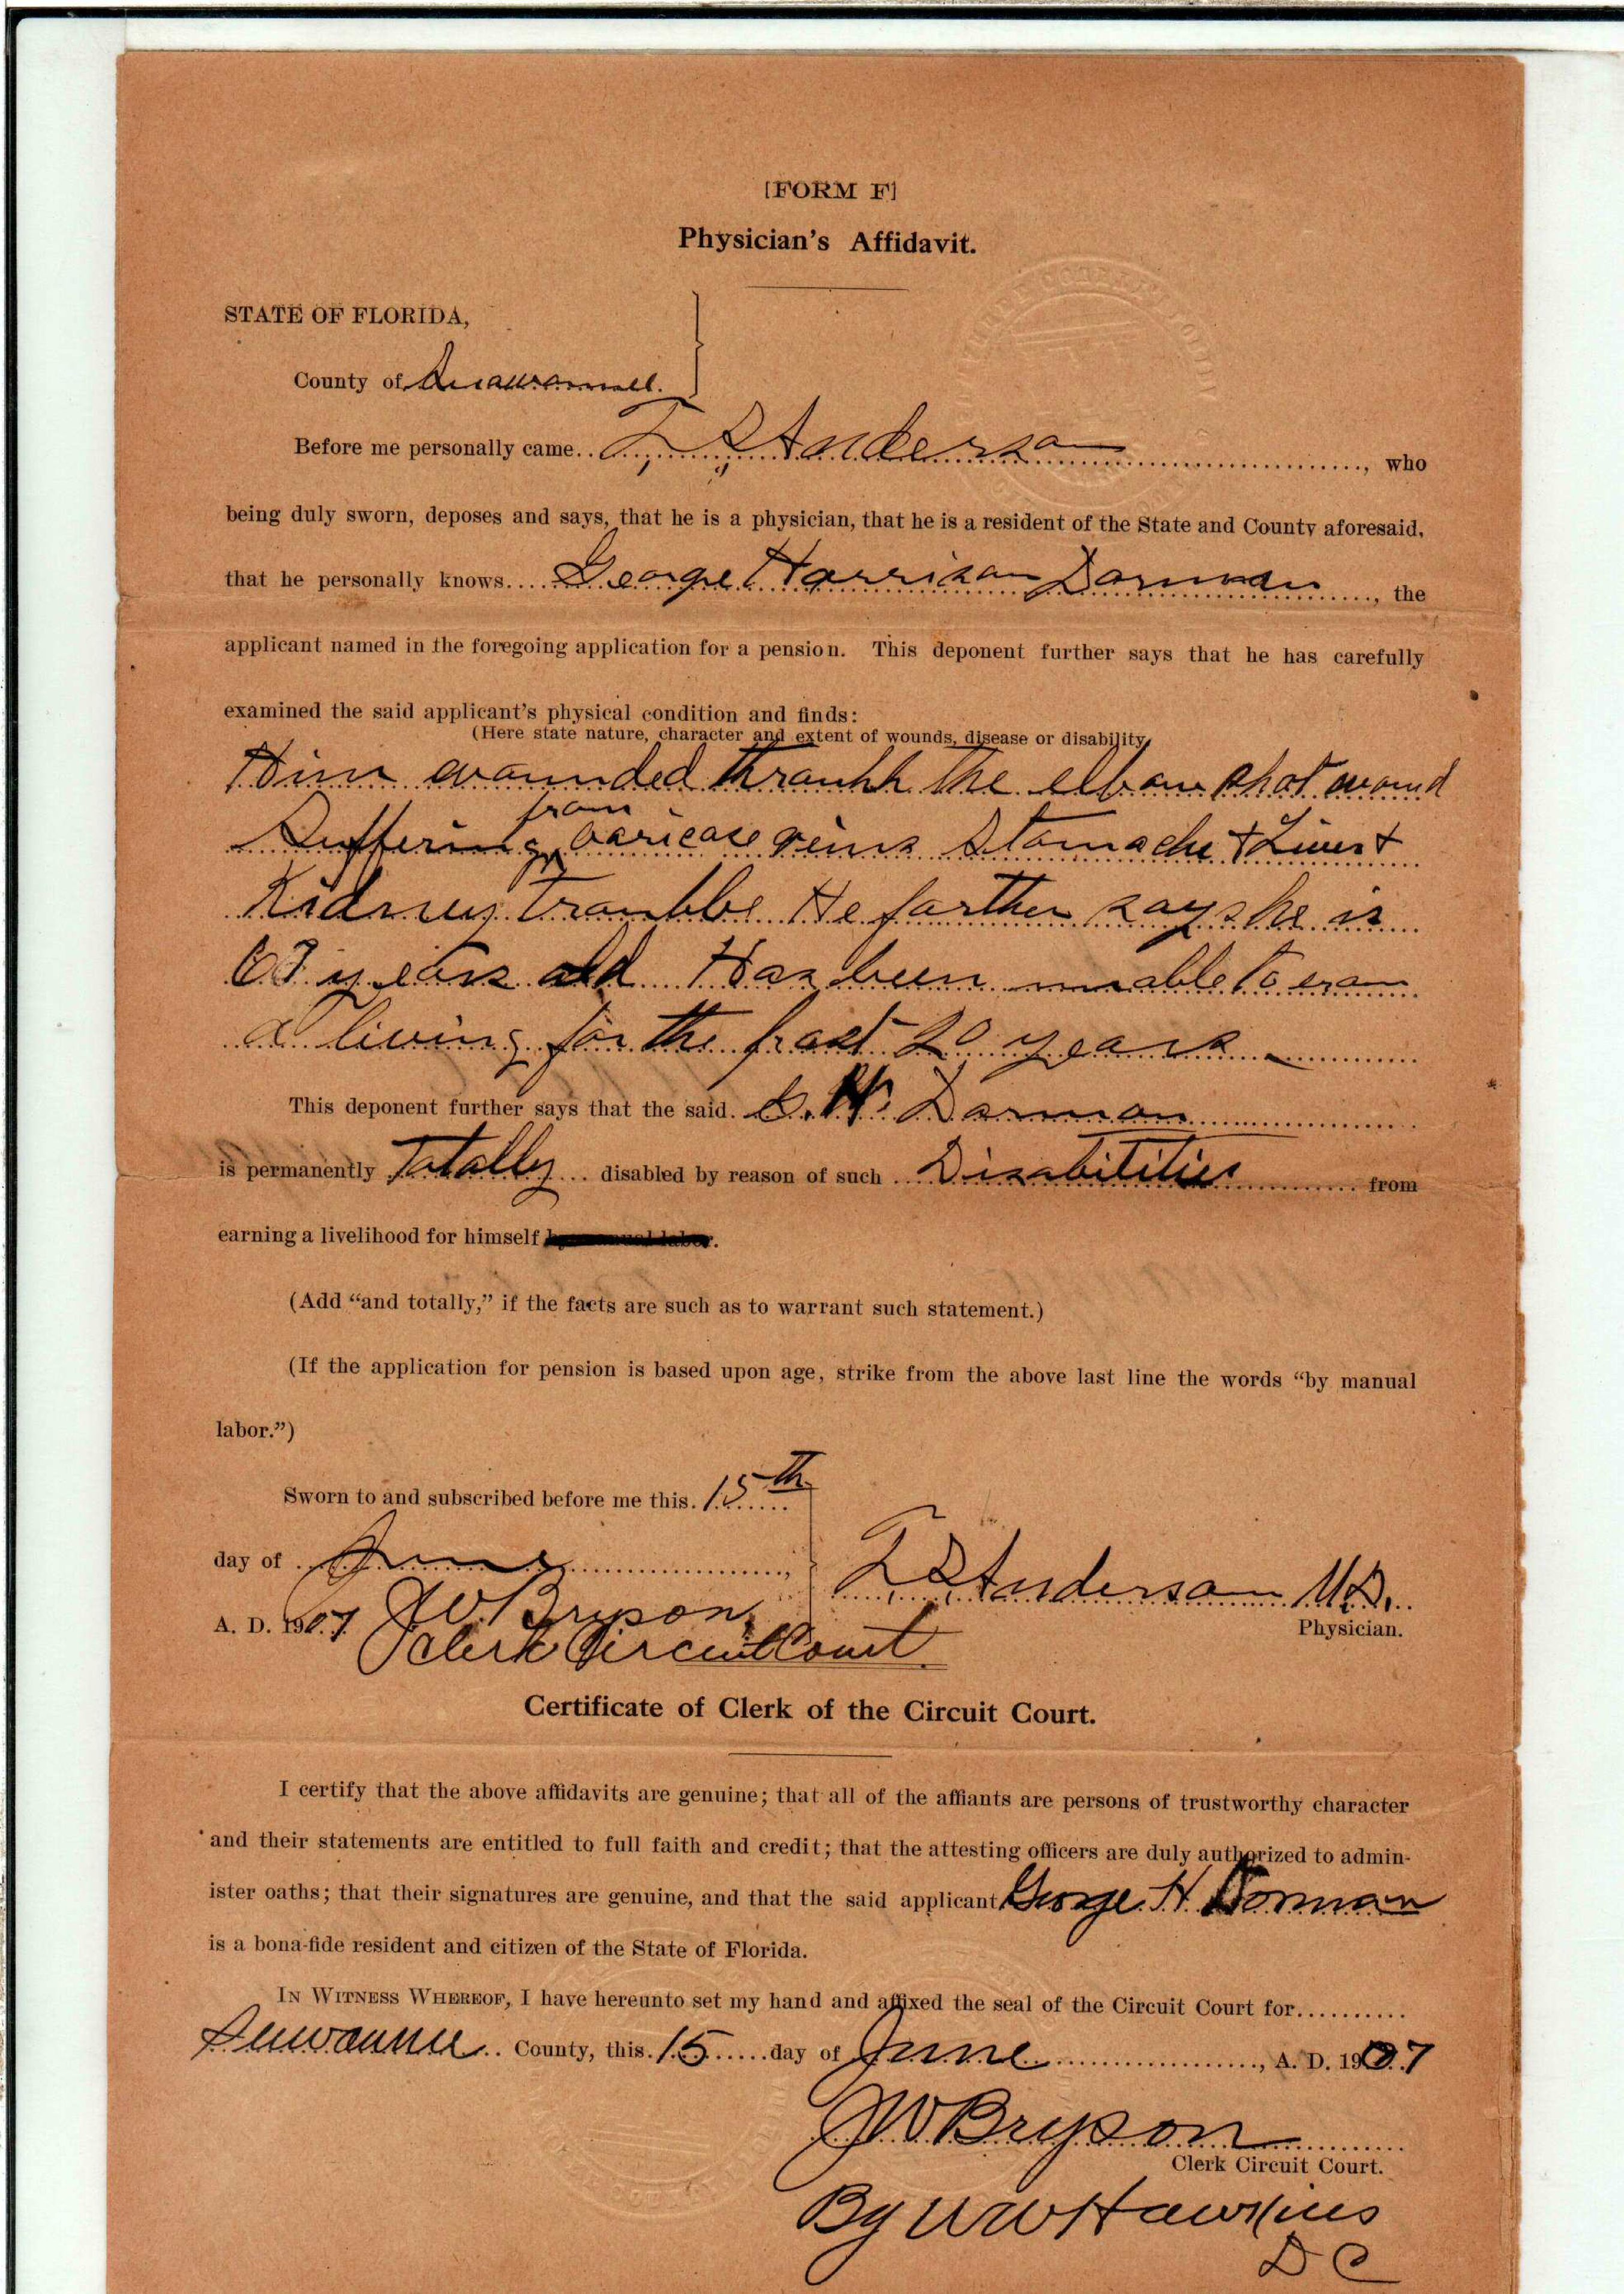 [FORM F]
Physician's Affidavit.
STATE OF FLORIDA,
County of Suwannee.
Before me personally came T. S. Anderson, who
being duly sworn, deposes and says, that he is a physician, that he is a resident of the State and County aforesaid,
that he personally knows George Harrison Dorman, the
applicant named in the foregoing application for a pension. This deponent further says that he has carefully
examined the said applicant's physical condition and finds:
(Here state nature, character and extent of wounds, disease or disability,
Him wounded through the elbow shot wound
from
Suffering varicose veins Stomache & Liver &
Kidney trouble He farther says he is
years old Has been unable to
a living for the past 20 years
This deponent further says that the said G. H. Dorman
is permanently Totally disabled by reason of such Disabilities from
earning a livelihood for himself by manual labor.
(Add “and totally,” if the facts are such as to warrant such statement.)
(If the application for pension is based upon age, strike from the above last line the words “by manual
labor.”)
Sworn to and subscribed before me this 15th
day of June,
T S Anderson M.D.
A. D. 1907 J W Bryson
Physician.
Clerk Circuit Court
Certificate of Clerk of the Circuit Court.
I certify that the above affidavits are genuine; that all of the affiants are persons of trustworthy character
and their statements are entitled to full faith and credit; that the attesting officers are duly authorized to admin-
ister oaths; that their signatures are genuine, and that the said applicant George H Dorman
is a bona-fide resident and citizen of the State of Florida.
IN WITNESS WHEREOF, I have hereunto set my hand and affixed the seal of the Circuit Court for
Suwannee County, this 15 day of June, A. D. 1907
J W Bryson
Clerk Circuit Court.
By W W Hawkins
D C